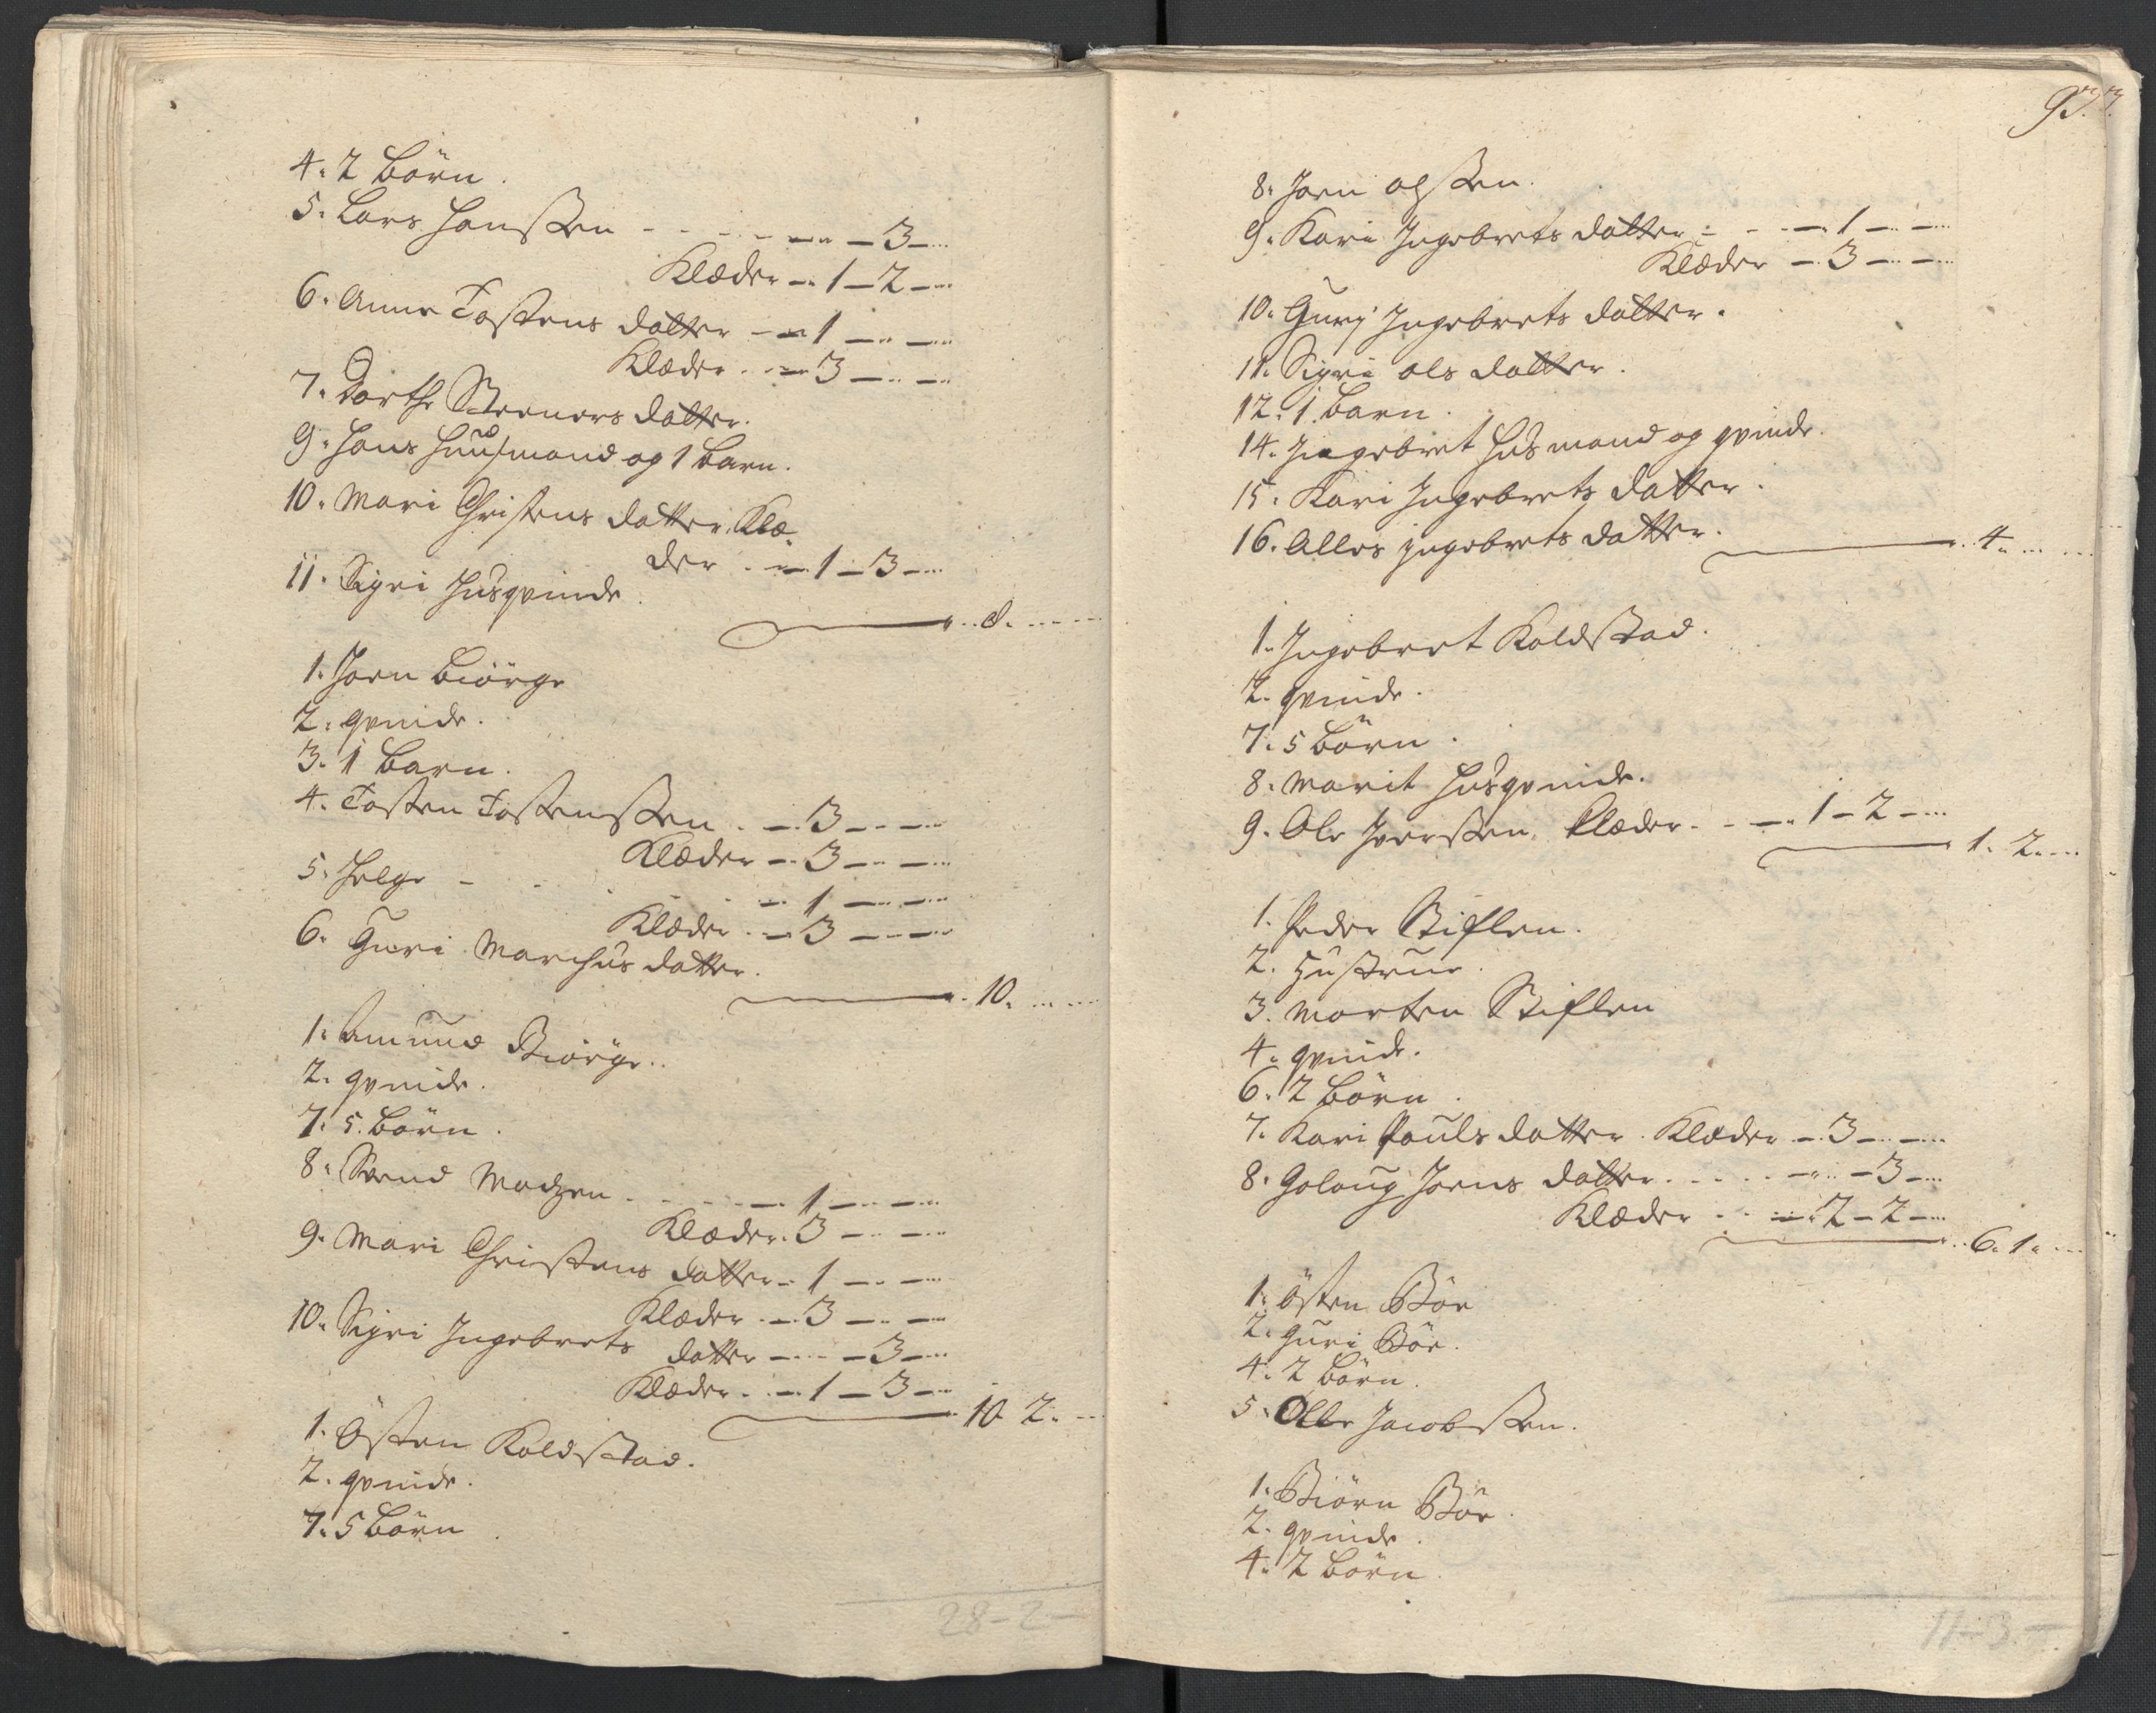 4. 2 Börn.
5. Lars Hanssen - - - - - - 3 -
Klæder - 1 - 2 -
6. Anne Tostens datter - 1 - -
Klæder - 3 - -
7. Dorthe Steenersdatter.
9. Hans Huusmand og 1 Barn.
10. Mari Christens datter Klæ
der - 1 - 3 -
11. Sigri Husqvinde.
8. - -
1. Joen Biörge
2. qvinde.
3. 1 Barn.
4. Tosten Tostenssen - 3 - -
Klæder - 3 - -
5. Helge - - - 1 - -
Klæder - 3 - -
6. Guri Marchus datter.
10. - -
1. Amund Biörge.
2. qvinde.
7. 5. Börn.
8. Svend Madzen - - - 1 - -
Klæder. 3 - -
9. Mari Christens datter - 1 - -
Klæder - 3 - -
10. Sigri Ingebrets datter - - 3 -
Klæder - 1 - 3 -
10 2. -
1. Östen Koldstad.
2. qvinde.
7. 5 Börn.
28-2-
93.
8. Joen olssen.
9. Kari Ingebrets datter - - 1 - -
Klæder - 3 - -
10. Gurj Ingebrets datter.
11. Sigri ols datter.
12. 1. Barn.
14. Ingebret Husmand og qvinde.
15. Kari Ingebrets datter.
16. Alles jngebrets datter.
4. - -
1. Ingebret Koldstad.
2. qvinde.
7. 5 Börn.
8. Marit Husqvinde.
9. Ole Iverssen. Klæder - - 1 - 2 -
1. 2. -
1. Peder Stiflen.
2. Hustrue.
3. Morten Stiflen
4. qvinde.
6. 2 Börn.
7. Kari Pouls datter. Klæder - 3 - -
8. Golaug Joens datter - - - - 3 -
Klæder - - 2 - 2 -
6. 1. -
1. Östen Böe
2. Guri Böe.
4. 2 Börn.
5. Olle Jacobssen.
1. Biörn Böe.
2. qvinde.
4. 2 Börn.
11-3-